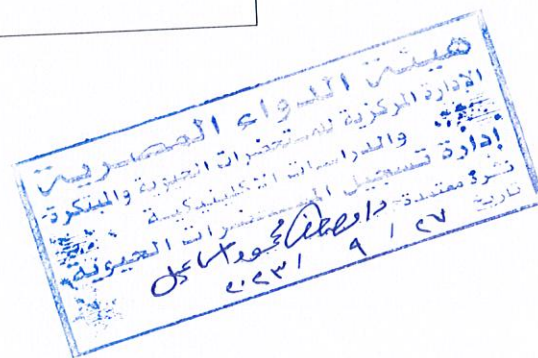 هيئة الدواء المصرية
الإدارة المركزية للمستحضرات الحيوية والمبتكرة
والدراسات الاكلينيكية
إدارة تسجيل المستحضرات الحيوية
نشرة معتمدة
محمود اسماعيل
تاريخ ٢٧ / ٩ / ٢٠٢٣